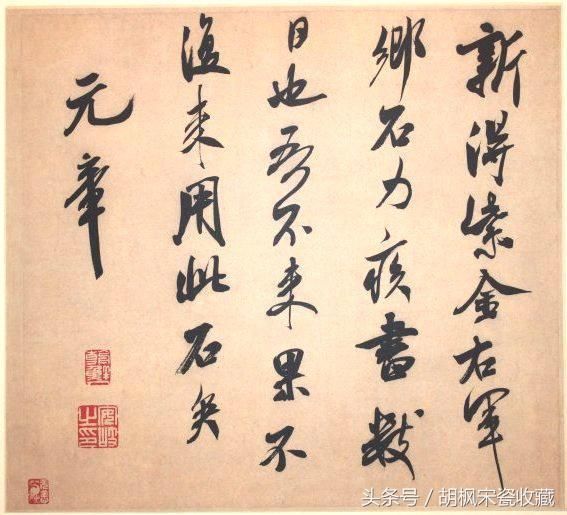 新得紫金右軍
鄉石力疾書數
日也吾不来果不
復来用此石矣
元章
安岐之印
头条号 / 胡枫宋瓷收藏